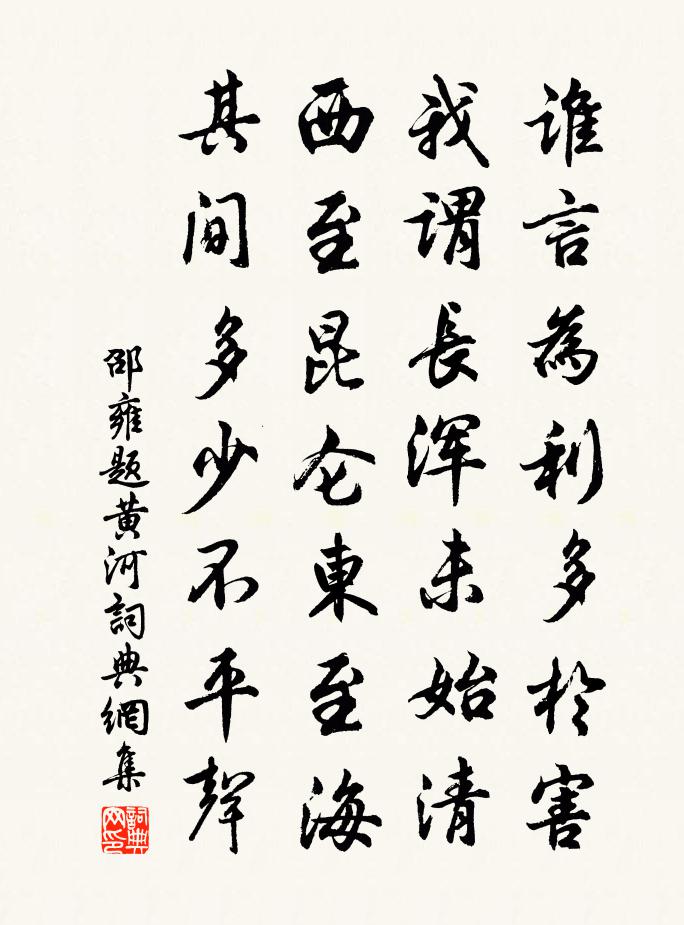 誰言為利多於害
我謂長浑未始清
西至昆仑東至海
其间多少不平聲
邵雍题黄河詞典網集
詞典网印